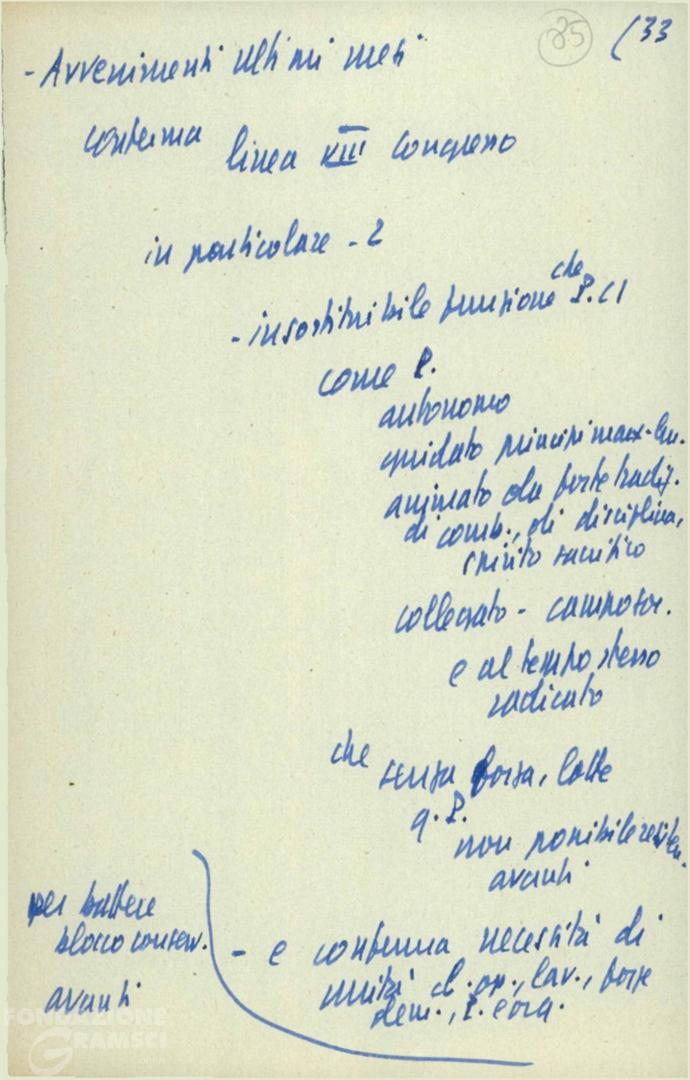 25 (33
- Avvenimenti ultimi mesi
conferma linea XIII congresso
in particolare - 2
- insostituibile funzione che P.CI
come P.
autonomo
guidato principi marx-len.
animato da forte tradiz.
di comb., di disciplina,
spirito sacrifico
collegato - campo soc.
e al tempo stesso
radicato
che senza forza, lotte
q. P.
non possibile
avanti
per battere
blocco conserv.
avanti
- e conferma necessità di
unità cl. op., lav., forze
dem., P. e org.
FONDAZIONE
GRAMSCI